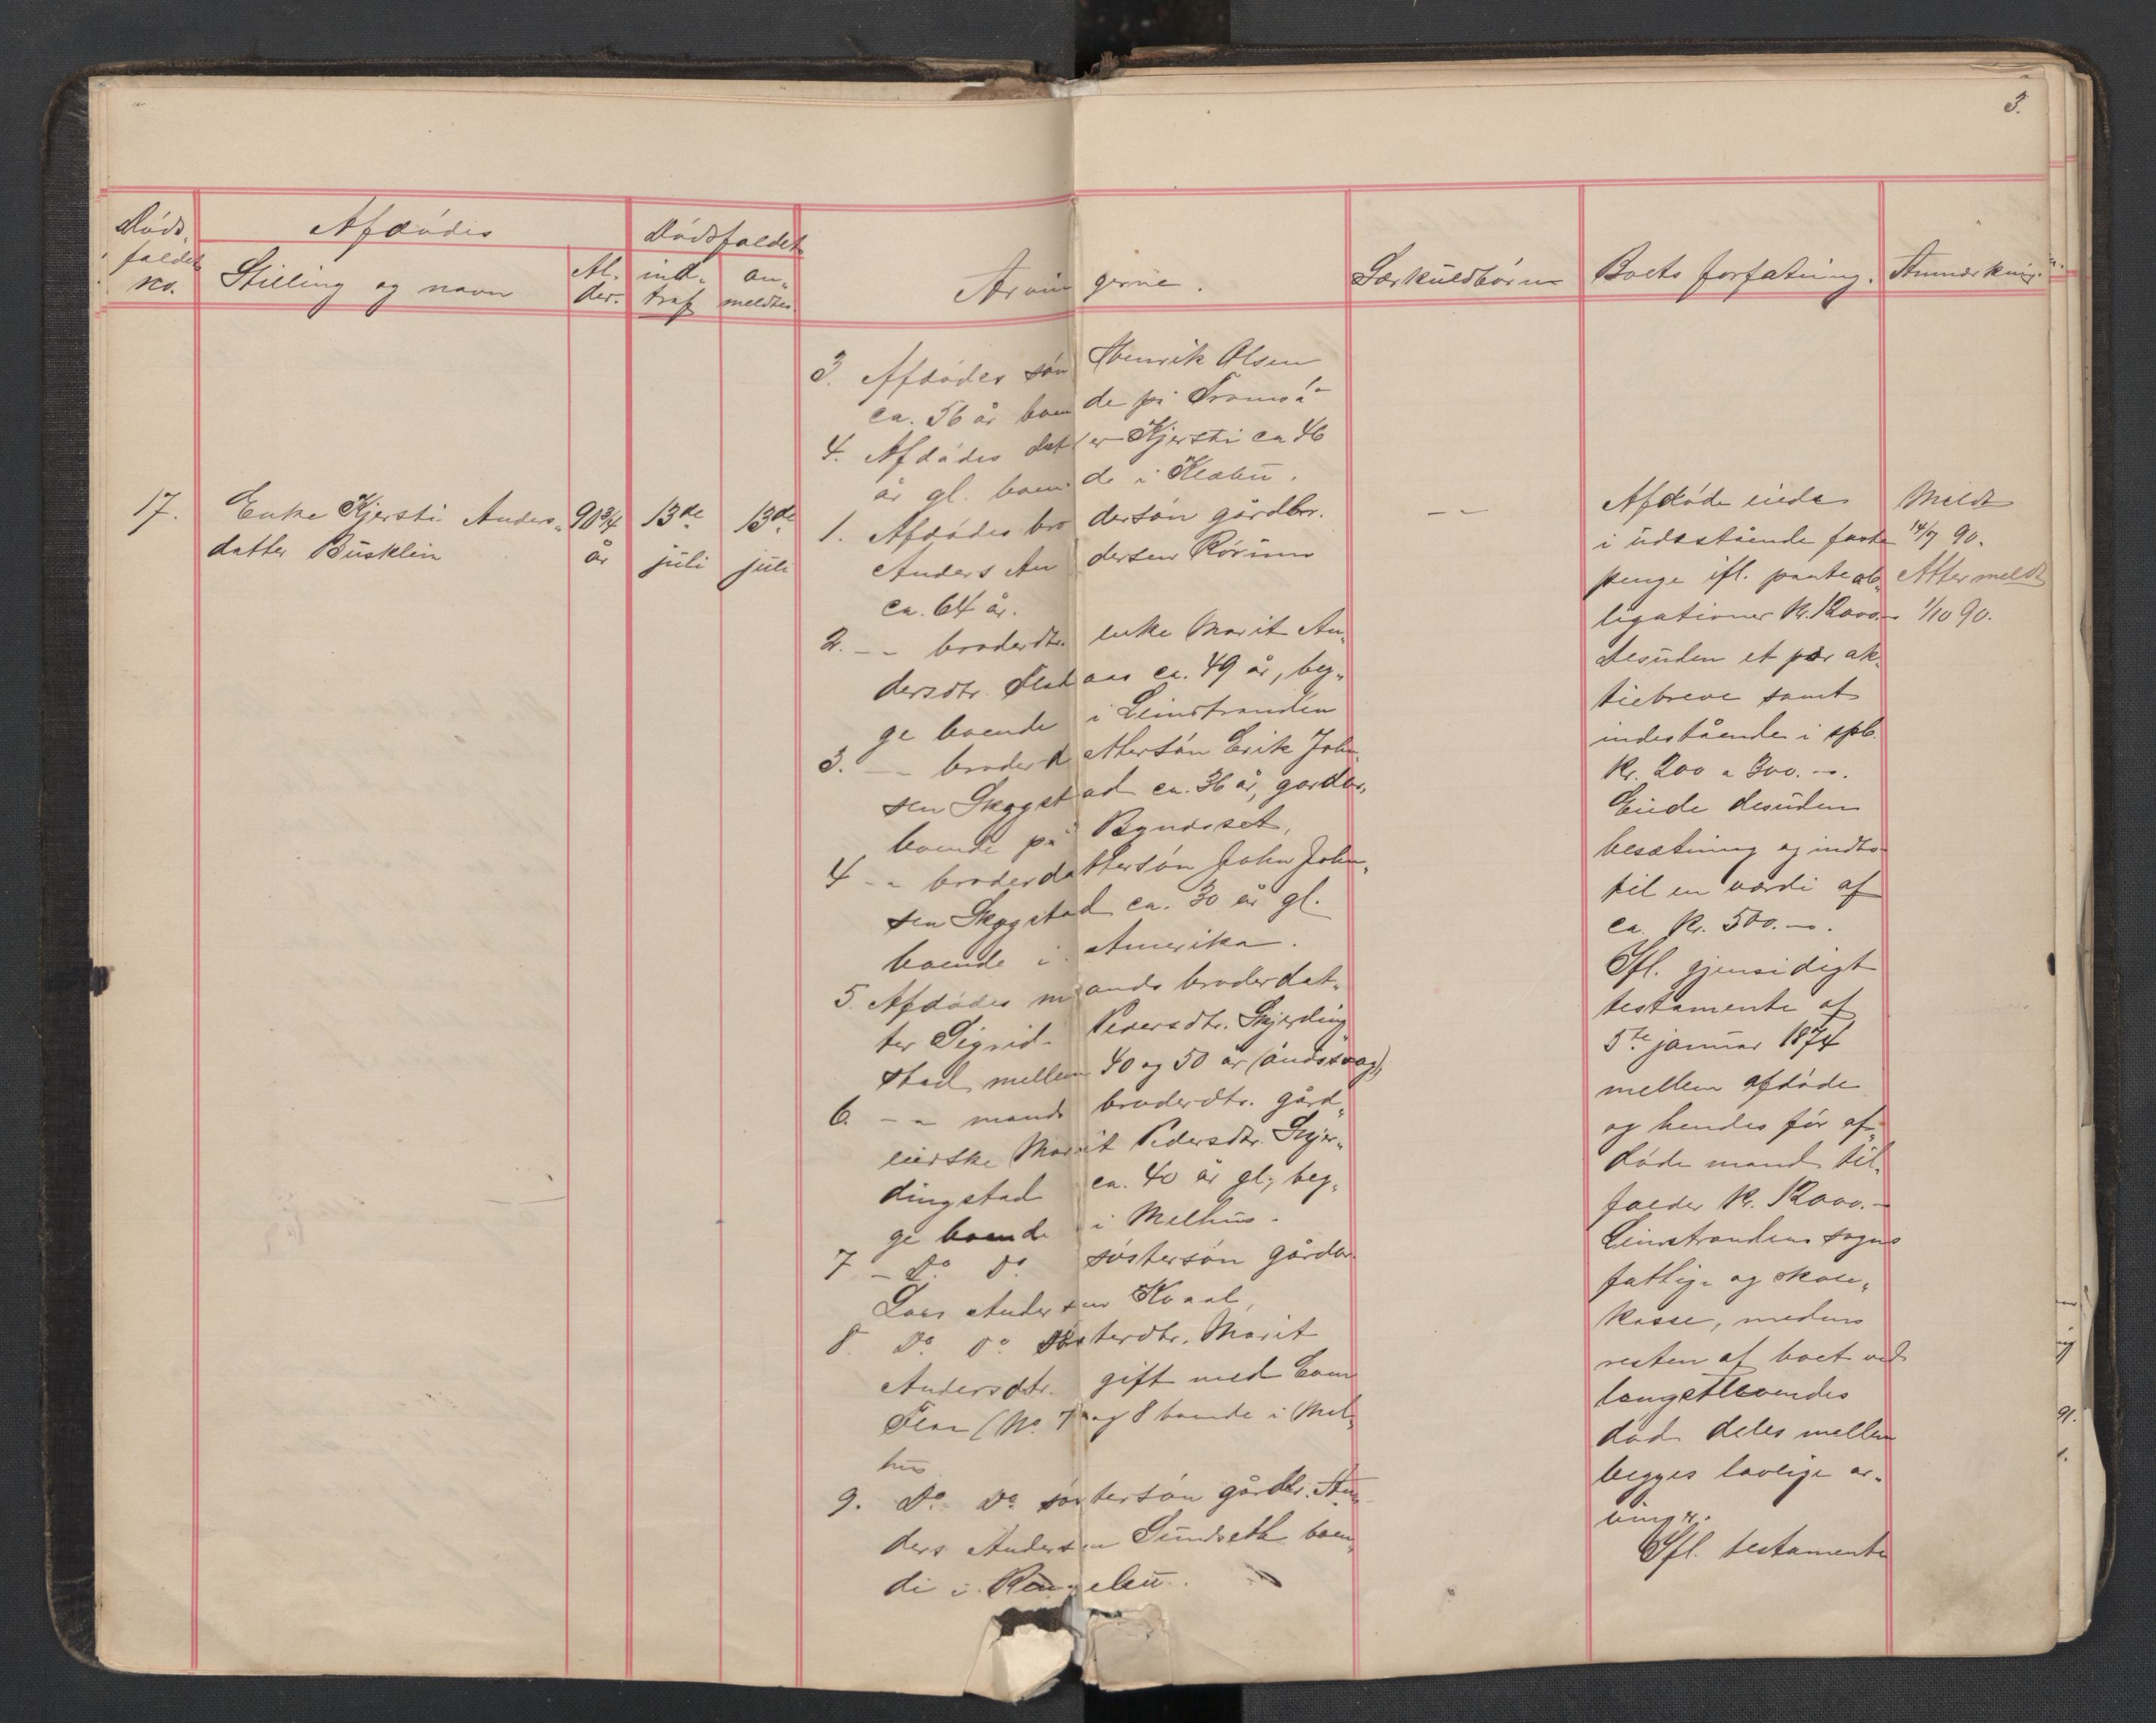 3.
Døds-
faldets
no.
Afdødes
Stilling og navn
Al-
der.
Dødsfaldet
ind-
traf
an-
meldtes.
Arvingerne.
Særkuldbørn
Boets forfatning.
Anmærkning.
3. Afdødes søn Henrik Olsen
ca. 56 år boende på Tromsø
4. Afdødes datter Kjersti ca 46
år gl. boende i Klæbu.
17.
Enke Kjersti Anders-
datter Busklin
90 3/4
år
13de
juli
13de
juli
1. Afdødes brodersøn gårdbr.
Anders Andersen Rørum
ca. 64 år.
2. -"- broderdtr. enke Marit An-
dersdtr. Flataas ca. 49 år, beg-
ge boende i Leinstranden
3. -"- broderdattersøn Erik John-
sen Skjøgstad ca. 36 år, gårdbr.
boende på Byneset,
4 -"- broderdattersøn John John-
sen Skjøgstad ca. 30 år gl.
boende i Amerika.
5. Afdødes mands broderdat-
ter Sigrid Pedersdtr. Skjerding-
stad mellem 40 og 50 år (åndssvag)
6. -"- mands broderdtr. gård-
eierske Marit Pedersdtr. Skjer-
dingstad ca. 40 år gl., beg-
ge boende i Melhus.
7 - Do. Do. søstersøn gårdbr.
Lars Andersen Kvaal,
8. Do. Do. søsterdtr. Marit
Andersdtr. gift med
(No. 7 og 8 boende i Mel-
hus
9. Do. Do. søstersøn gårdbr. An-
ders Andersen Sundseth boen-
de i
-"-
Afdøde eiede
i udestående faste
penge ifl. panteob-
ligationer kr. 12000.-
desuden et par ak-
tiebreve samt
indestående i spb.
kr. 200 a 300.-.
Eiede desuden
besætning og indbo
til en værdi af
ca. kr. 500.-.
Ifl. gjensidigt
testamente af
5te januar 1874
mellem afdøde
og hendes før af-
døde mand til-
falder kr. 12000.-
Leinstrandens sogns
fattig- og skole-
kasse, medens
resten af boet ved
længstlevendes
død deles mellem
begges lovlige ar-
vinger.
Ifl. testamente
Meldt
14/7 90.
Atter meldt
1/10 90.